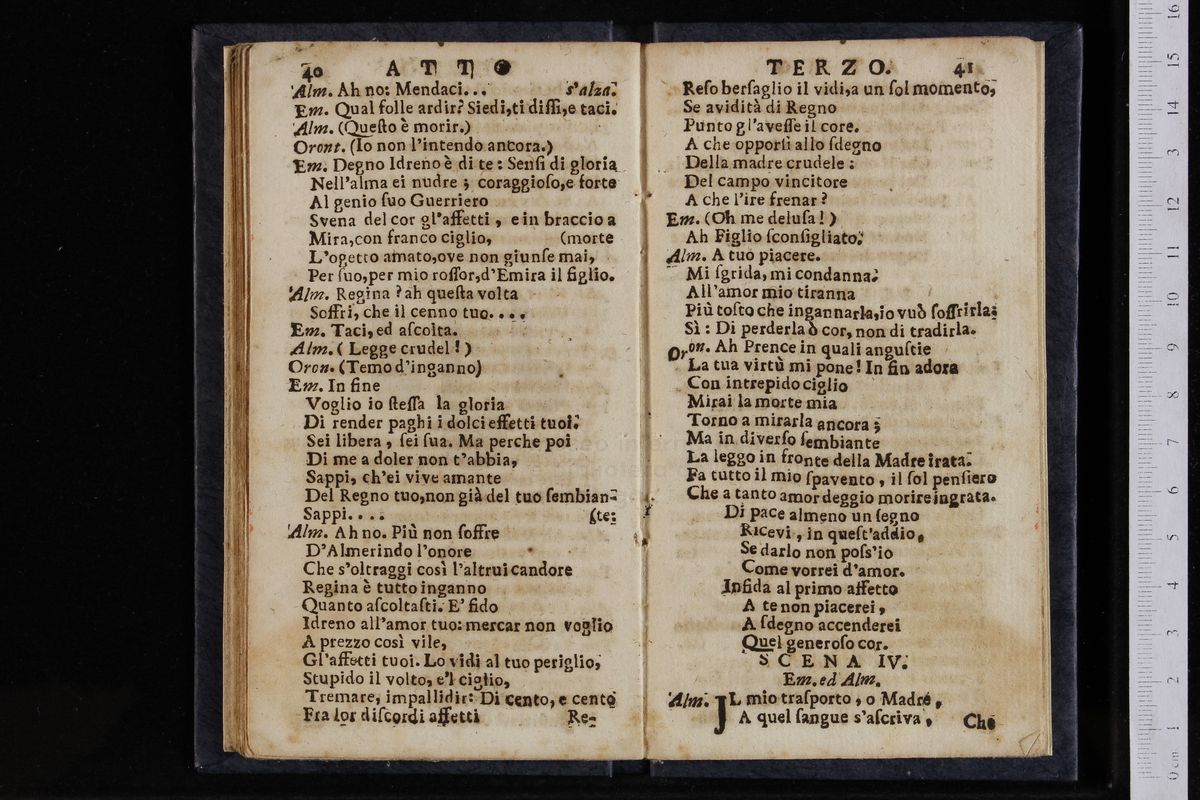 40 ATTO
Alm. Ah no: Mendaci... s'alza.
Em. Qual folle ardir? Siedi,ti diſſi,e taci.
Alm. (Queſto è morir.)
Oront. (Io non l'intendo ancora.)
Em. Degno Idreno è di te: Senſi di gloria
Nell'alma ei nudre; coraggioſo,e forte
Al genio ſuo Guerriero
Svena del cor gl'affetti, e in braccio a
Mira,con franco ciglio, (morte
L'ogetto amato,ove non giunſe mai,
Per ſuo,per mio roſſor,d'Emira il figlio.
Alm. Regina? ah queſta volta
Soffri, che il cenno tuo....
Em. Taci, ed aſcolta.
Alm. (Legge crudel!)
Oron. (Temo d'inganno)
Em. In fine
Voglio io ſteſſa la gloria
Di render paghi i dolci effetti tuoi.
Sei libera, ſei ſua. Ma perche poi
Di me a doler non t'abbia,
Sappi, ch'ei vive amante
Del Regno tuo,non già del tuo ſembian-
Sappi.... (te:
Alm. Ah no. Più non ſoffre
D'Almerindo l'onore
Che s'oltraggi così l'altrui candore
Regina è tutto inganno
Quanto aſcoltaſti. E' fido
Idreno all'amor tuo: mercar non voglio
A prezzo così vile,
Gl'affetti tuoi. Lo vidi al tuo periglio,
Stupido il volto, e'l ciglio,
Tremare, impallidir: Di cento, e cento
Fra lor diſcordi affetti Re-
TERZO. 41
Reſo berſaglio il vidi,a un ſol momento,
Se avidità di Regno
Punto gl'aveſſe il core.
A che opporſi allo ſdegno
Della madre crudele:
Del campo vincitore
A che l'ire frenar?
Em. (Oh me deluſa!)
Ah Figlio ſconſigliato.
Alm. A tuo piacere.
Mi ſgrida, mi condanna.
All'amor mio tiranna
Più toſto che ingannarla,io vuò ſoffrirla;
Sì: Di perderla ò cor, non di tradirla.
Oron. Ah Prence in quali anguſtie
La tua virtù mi pone! In fin adora
Con intrepido ciglio
Mirai la morte mia
Torno a mirarla ancora;
Ma in diverſo ſembiante
La leggo in fronte della Madre irata.
Fa tutto il mio ſpavento, il ſol penſiero
Che a tanto amor deggio morire ingrata.
Di pace almeno un ſegno
Ricevi, in queſt'addio,
Se darlo non poſs'io
Come vorrei d'amor.
Infida al primo affetto
A te non piacerei,
A ſdegno accenderei
Quel generoſo cor.
SCENA IV.
Em. ed Alm.
Alm. IL mio traſporto, o Madre,
A quel ſangue s'aſcriva, Che